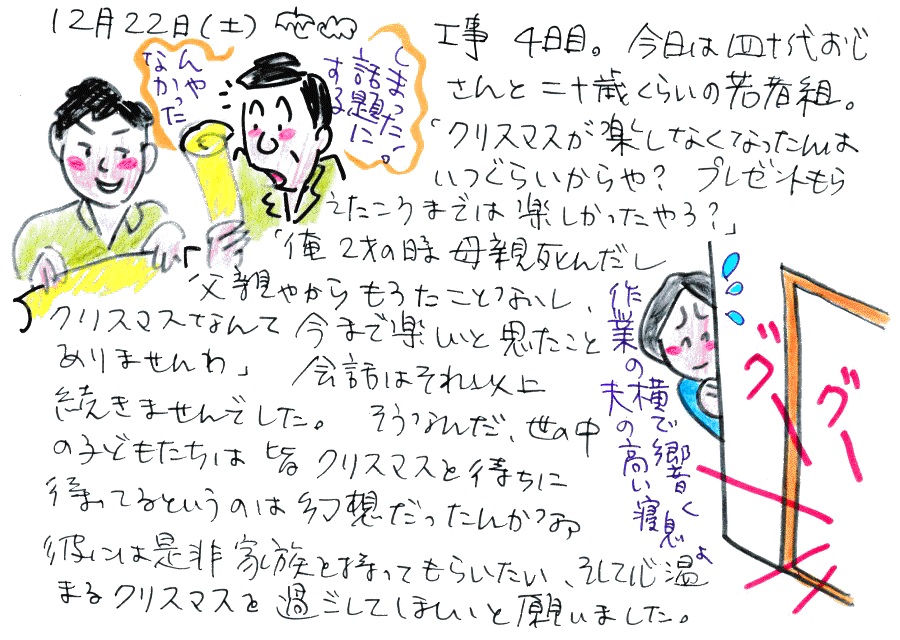 12月22日(土)
しまった、
話題に
する
んや
なかった
工事 4日目。 今日は四十代おじ
さんと二十歳くらいの若者組。
「クリスマスが楽しなくなったんは
いつぐらいからや? プレゼントもら
えたころまでは楽しかったやろ?」
「俺2才の時母親死んだし
父親やからもろたことないし、
クリスマスなんて今まで楽しいと思たこと
ありませんわ」 会話はそれ以上
続きませんでした。 そうなんだ、世の中
の子どもたちは皆クリスマスを待ちに
待ってるというのは幻想だったんかなア
彼には是非家族を持ってもらいたい、そして心温
まるクリスマスを過ごしてほしいと願いました。
作業の横で響く
夫の高い寝息よ
グー
グー